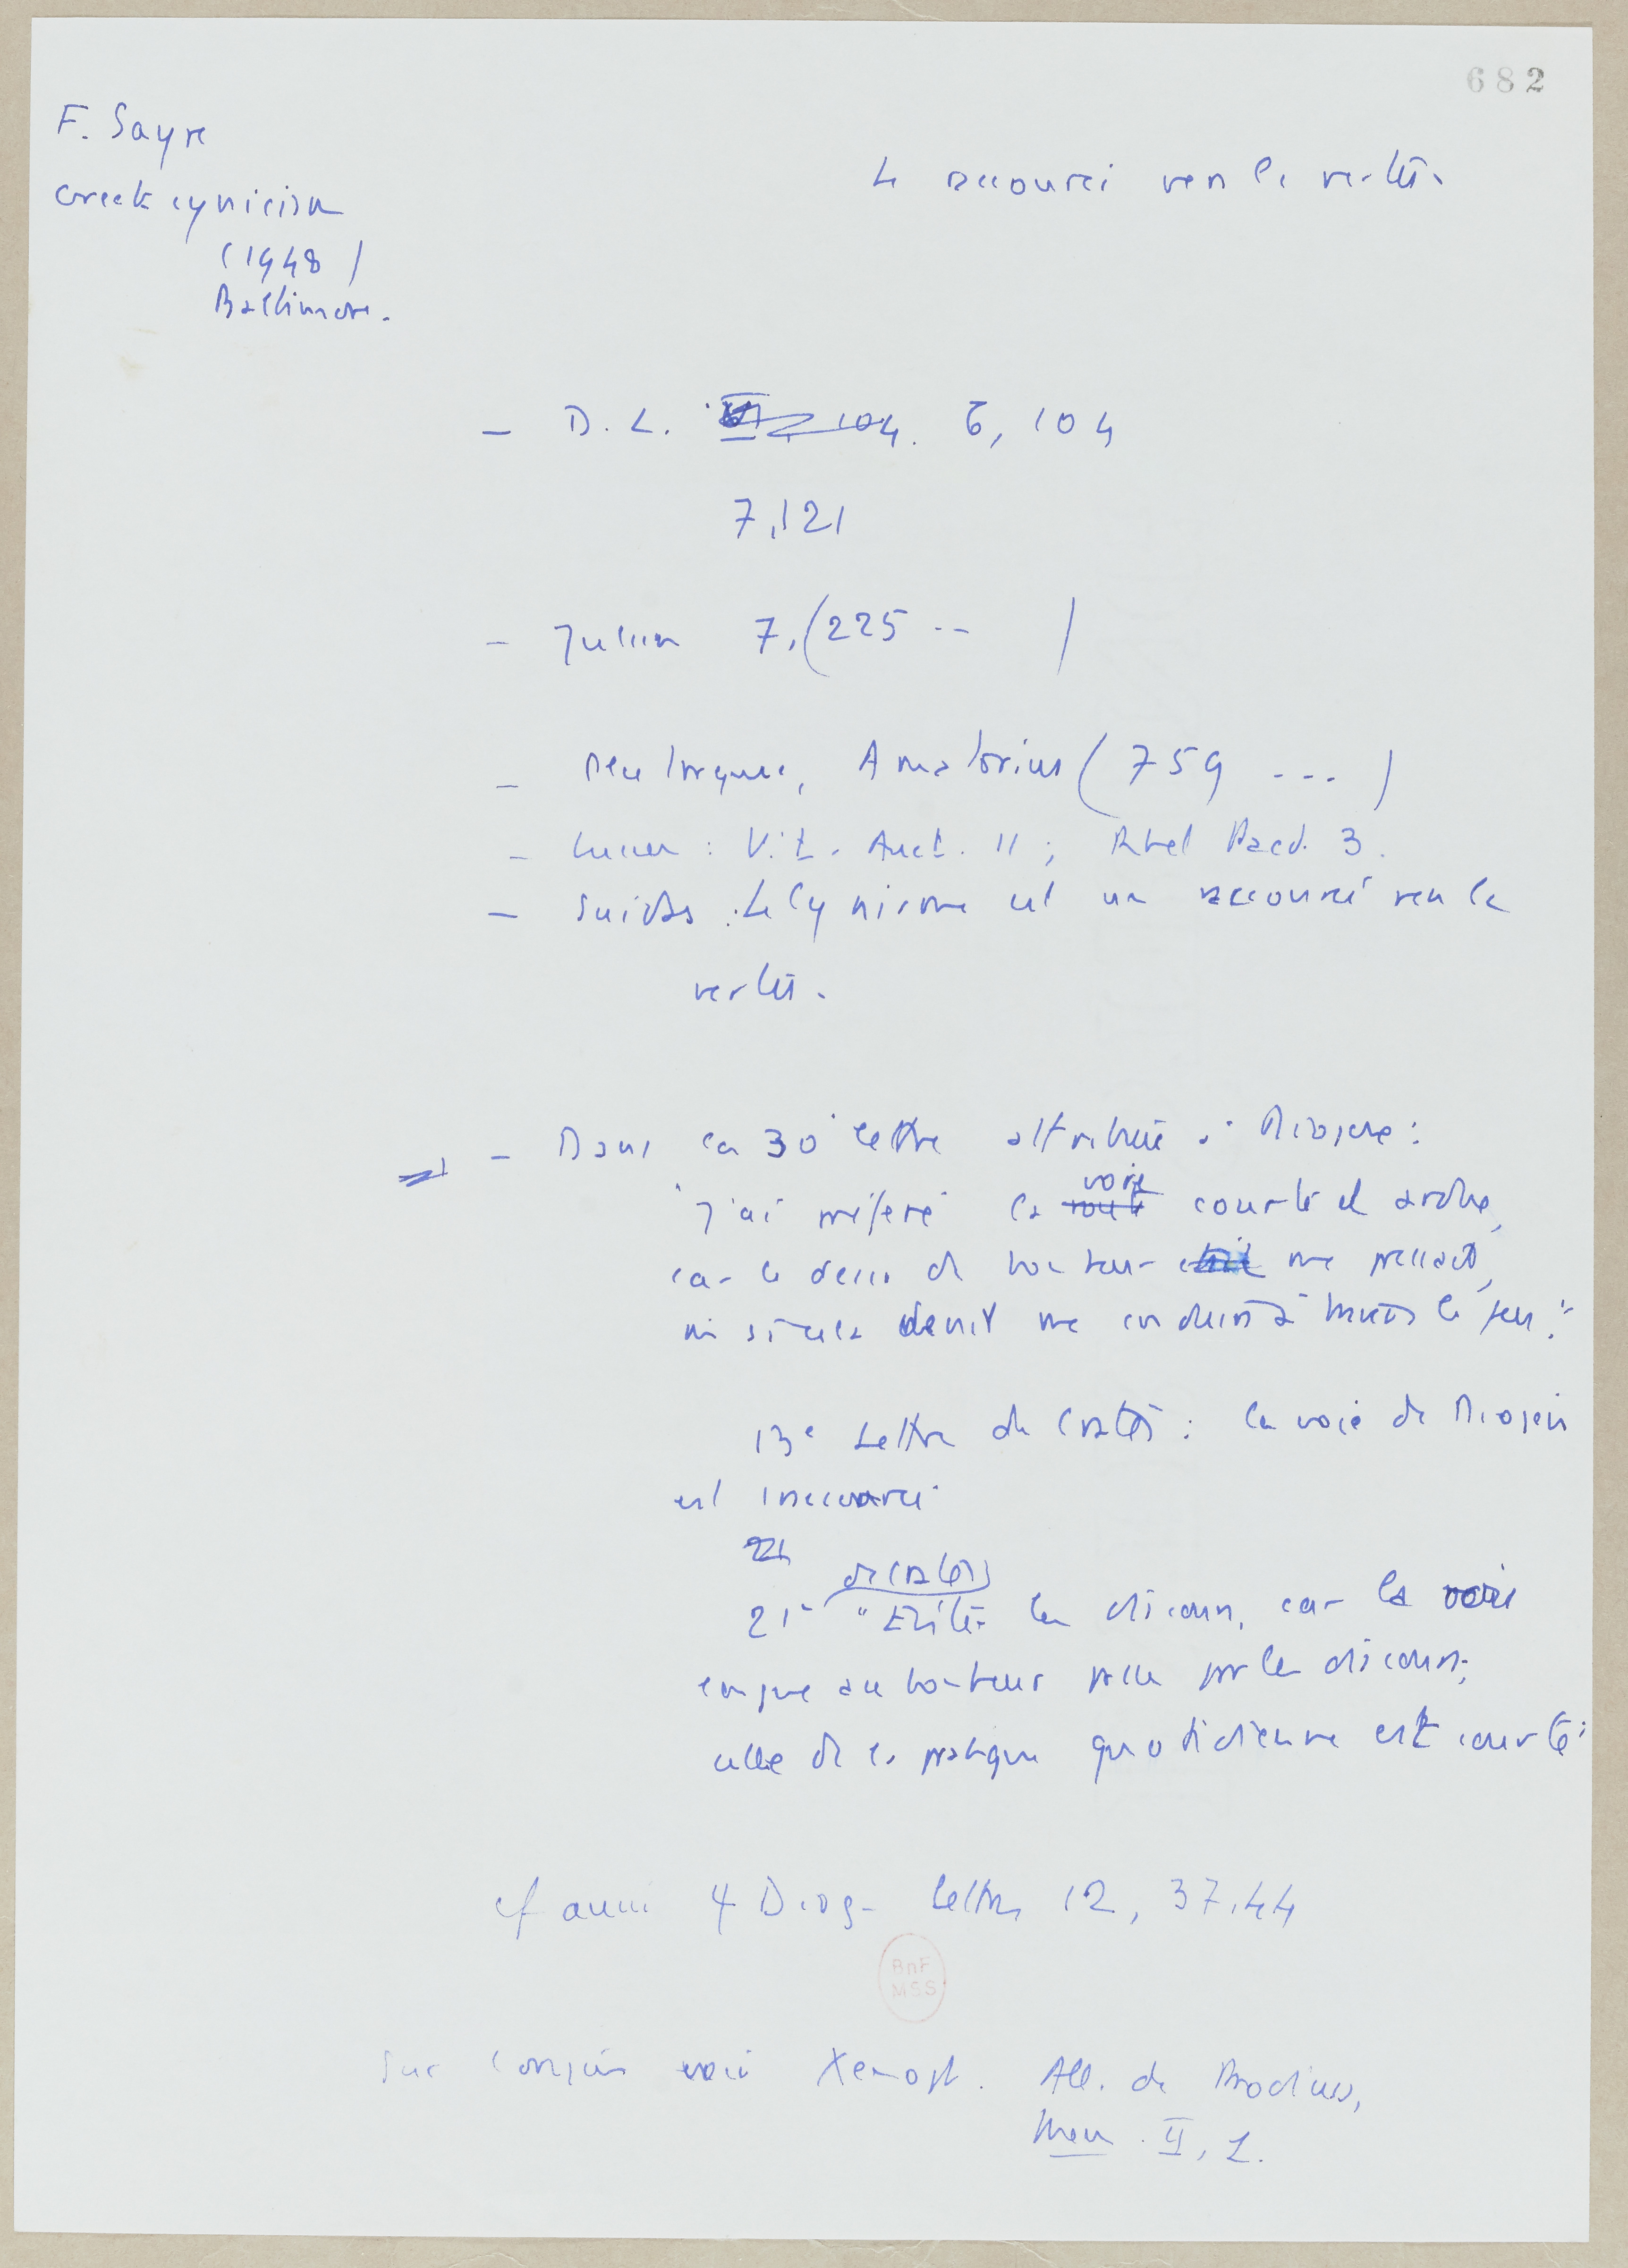 682
F. Sayre
Greek cynicism
(1948)
Baltimore.
Le raccourci vers la vertu.
– D. L. VI, 104. 6, 104
7,121
– Julien 7, (225 -- )
– Plutarque, Amatorius (759 --- )
– Lucien : Vit. Auct. 11 ; Rhet Praec. 3.
– Suidas : Le Cynisme est un raccourci vers la
vertu.
– Dans la 30e lettre attribuée à Diogène :
"J'ai préféré la route voie courte et ardue,
car le désir du bonheur me pressait,
13e Lettre de Cratès : la voie de Diogène
est raccourci
21
de Cratès
21e "Evite les discours, car la voie
longue au bonheur passe par les discours;
celle de la pratique quotidienne est courte"
cf aussi Diog. Lettres 12, 37, 44
Sur l'origine voir Xenoph. All. de Prodicos,
Mem. II, 1.
BnF
MSS